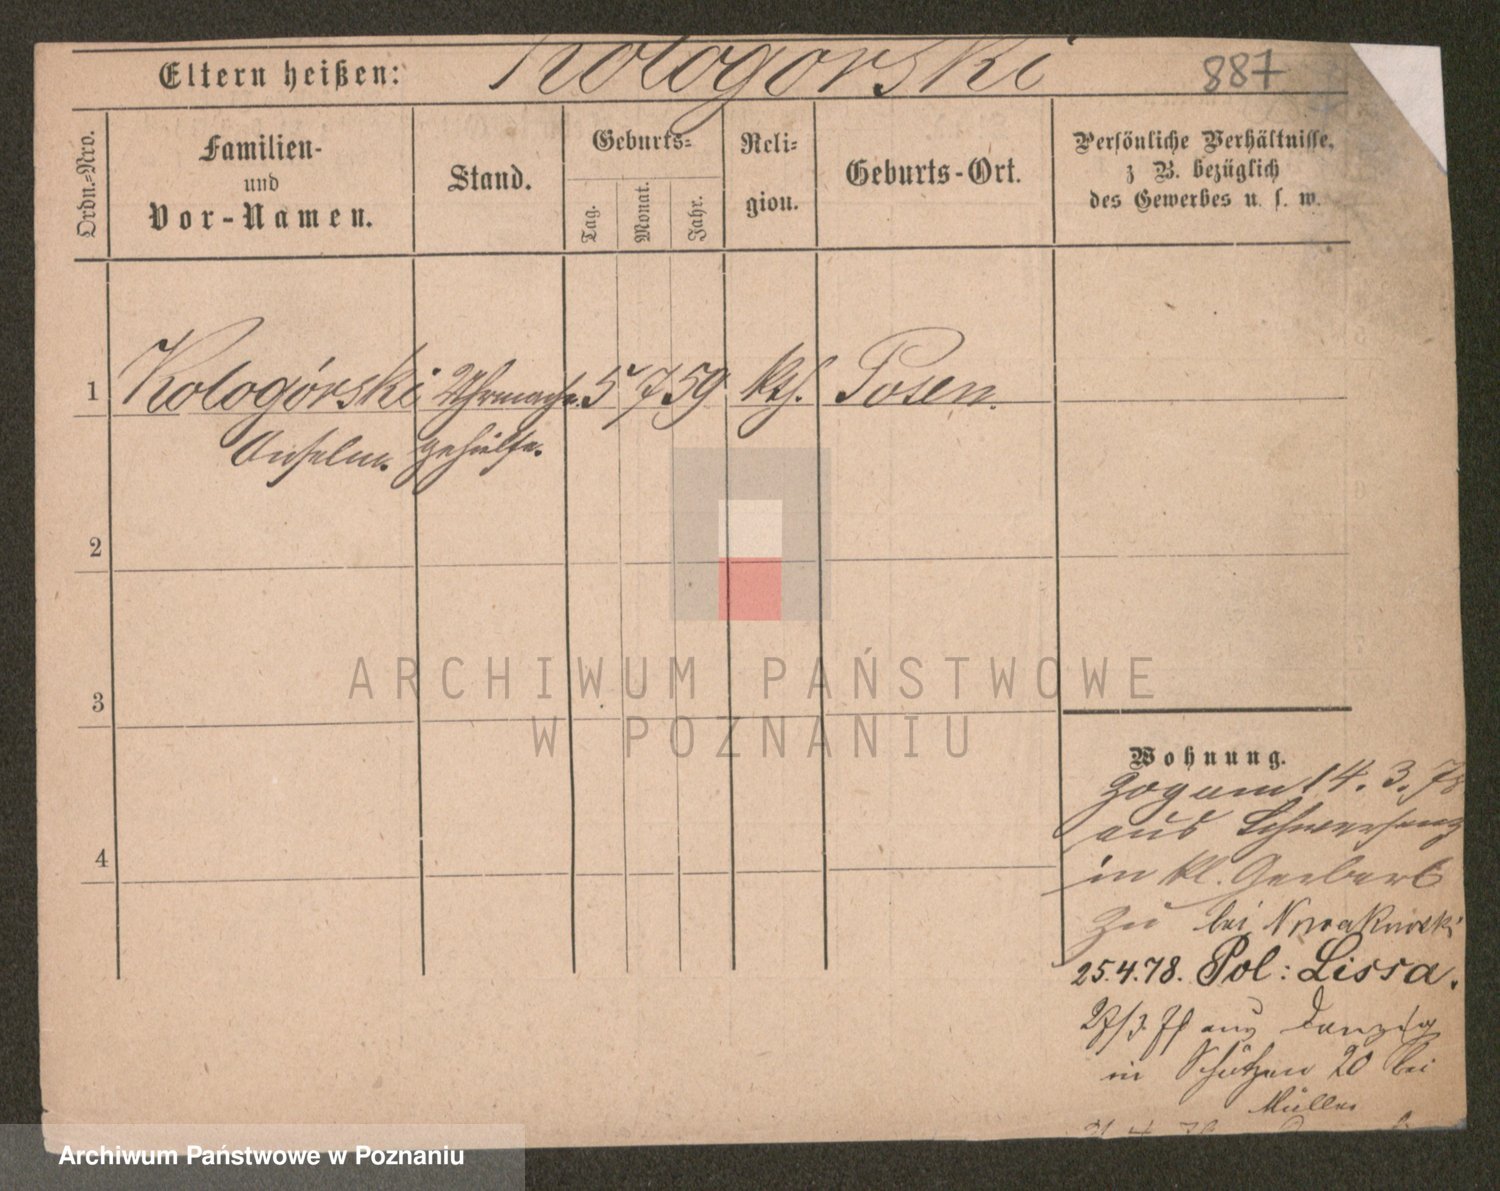 Eltern heißen: Kologórski 887
Ordn.-Nro.
Familien-
und
Vor-Namen.
Stand.
Geburts-
Tag.
Monat.
Jahr.
Reli-
gion.
Geburts-Ort.
Persönliche Verhältnisse,
z B. bezüglich
des Gewerbes u. s. w.
1 Kologórski Uhrmach. 5 7 59 kth. Posen.
Anselm. gehülfe.
2
3
4
Wohnung.
Zog am 14. 3. 78
aus Schwersenz
in kl. Gerberb
zu bei Nowakowski
25.4.78. Pol: Lissa.
aus Danzig
in Schützen 20 bei
Müller
ARCHIWUM PAŃSTWOWE
W POZNANIU
Archiwum Państwowe w Poznaniu